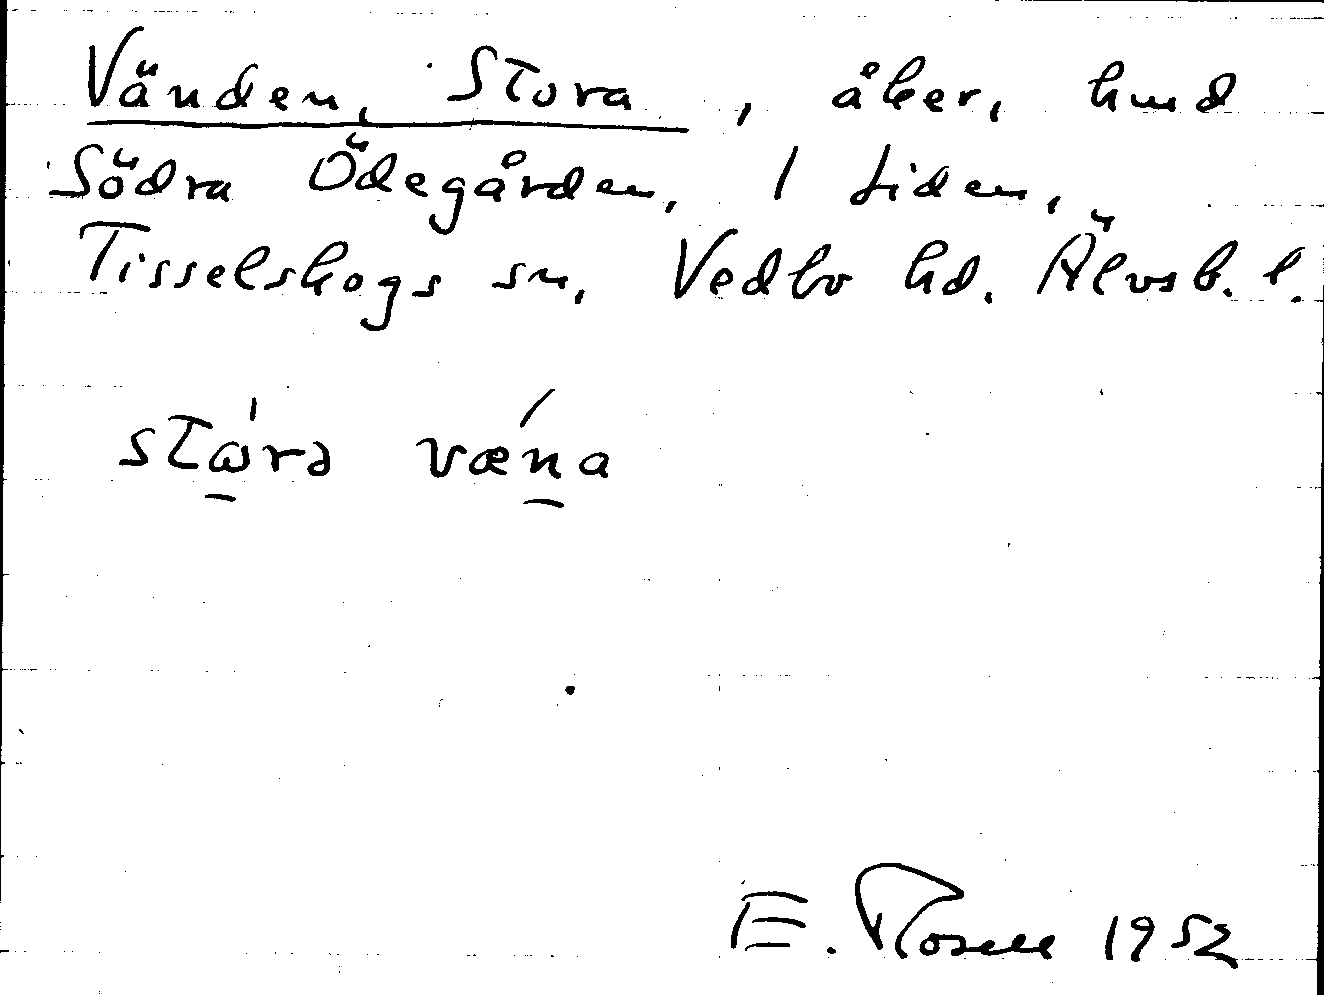 Vänden, Stora, åker, hmd
Södra Ödegården, 1 Liden,
Tisselskogs sn, Vedbo hd. Älvsb. l.
stώ̱rə væ̱ńa
E. Rosell 1952